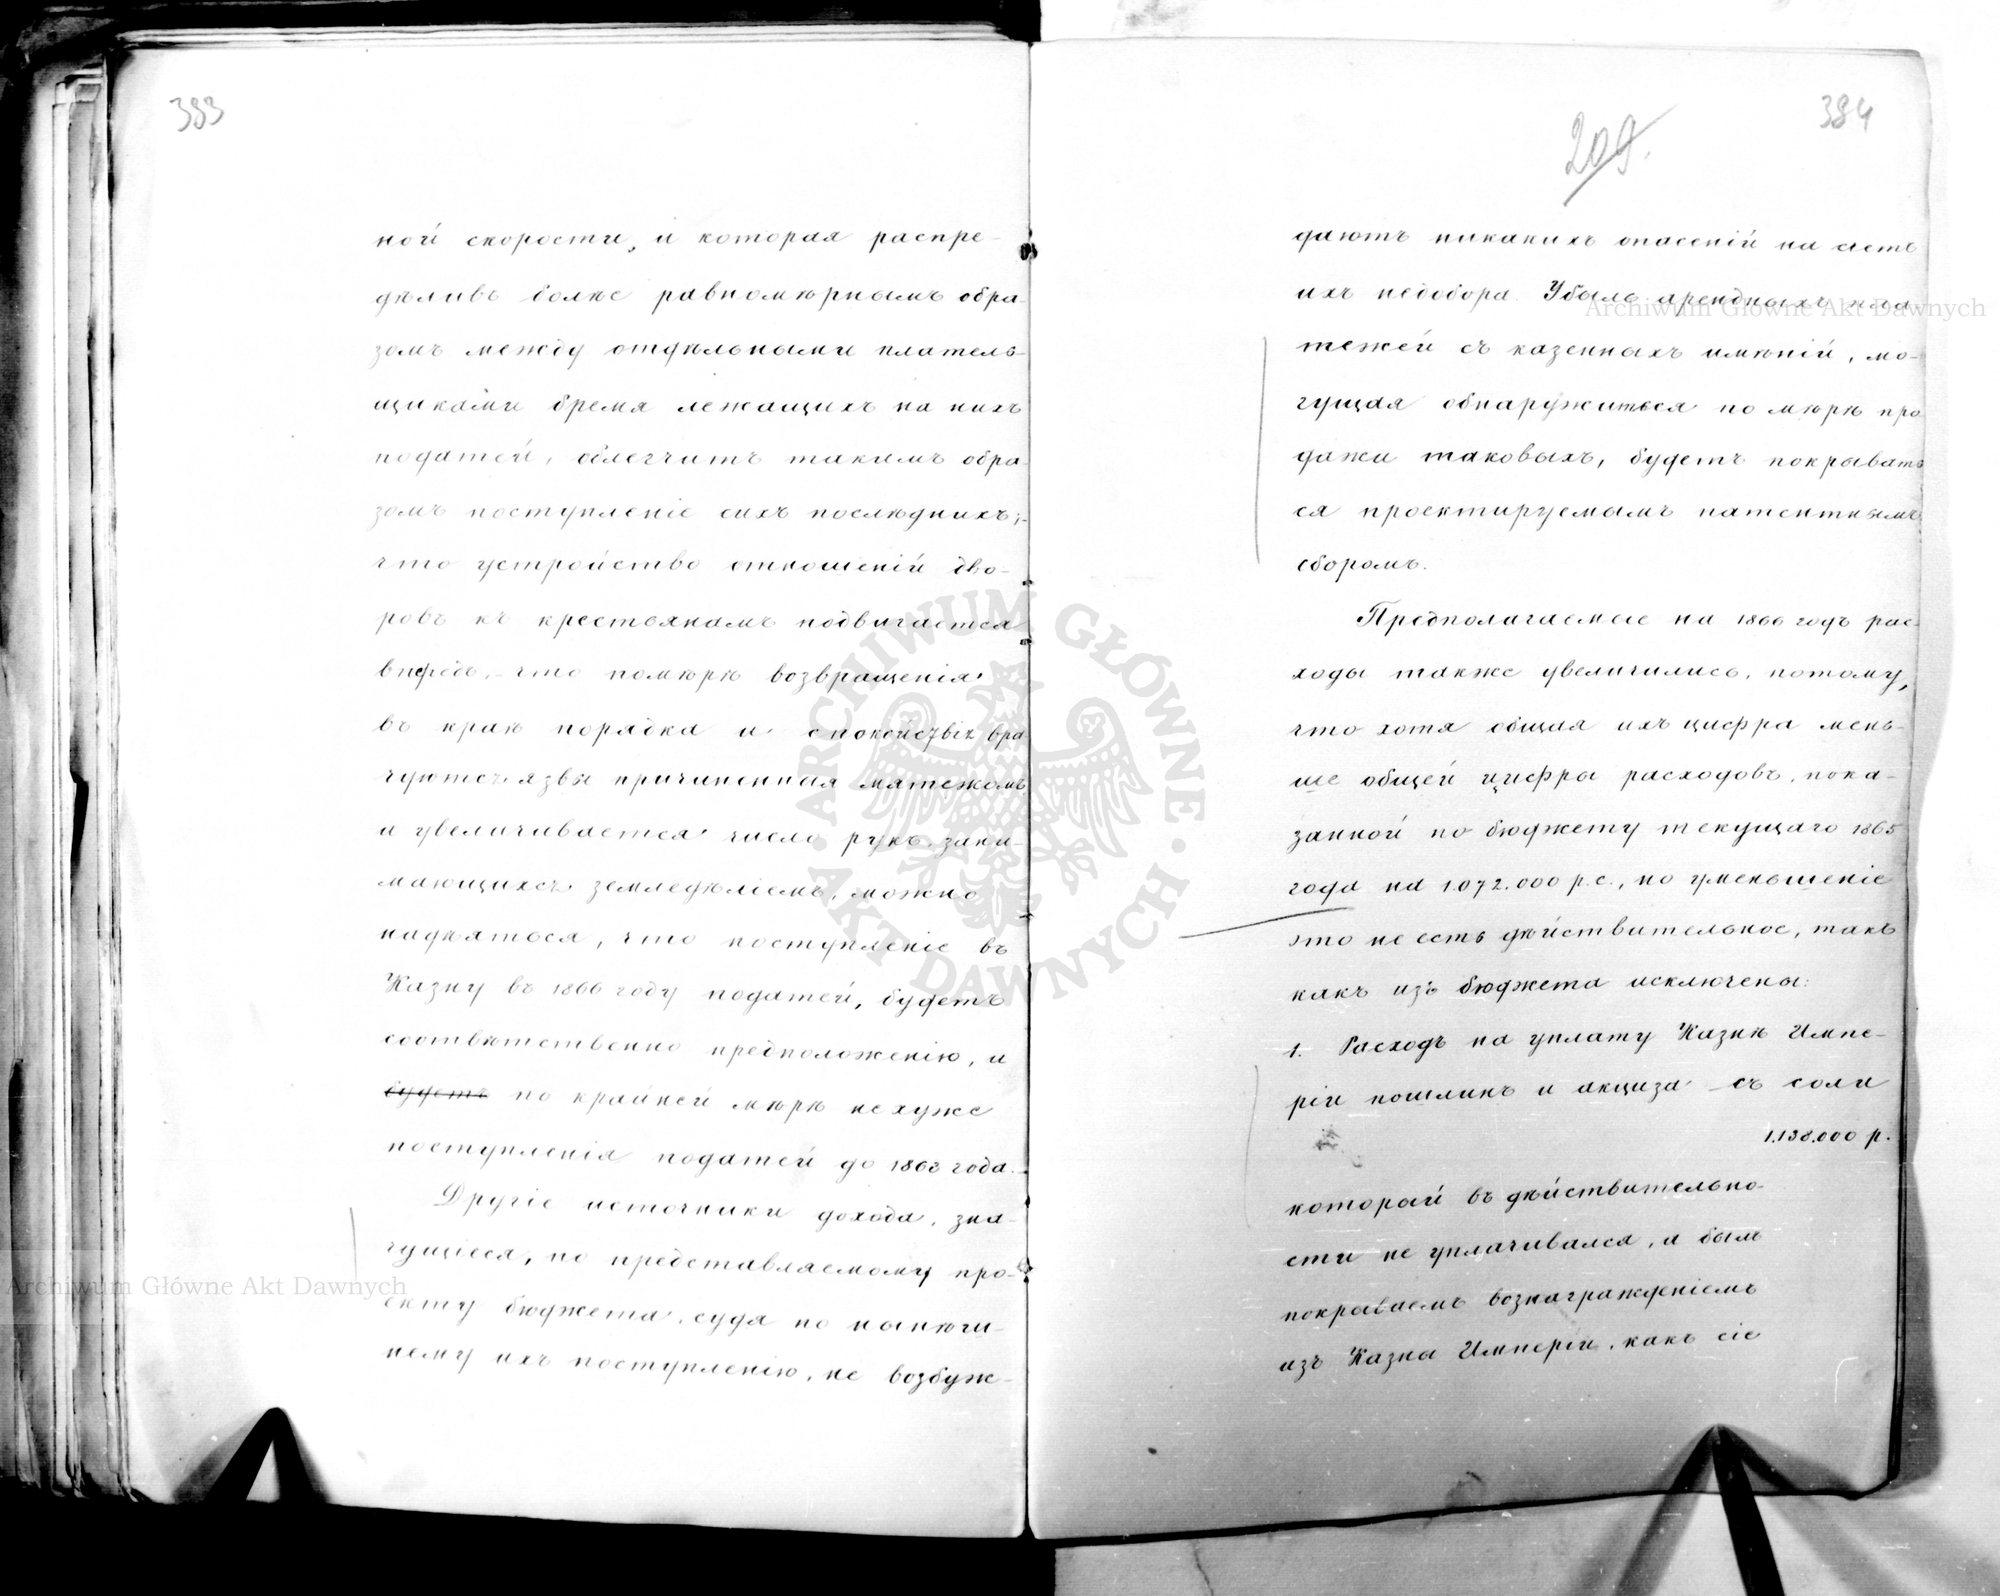 383
ной скорости, и которая распре-
дѣливъ болѣе равномѣрнымъ обра-
зомъ между отдѣльными платель-
щиками бремя лежащихъ на нихъ
податей, облегчитъ такимъ обра-
зомъ поступленіе сихъ послѣднихъ;-
что устройство отношеній дво-
ровъ къ крестьянамъ подвигается
впередъ, - что помѣрѣ возвращенія
въ краѣ порядка и спокойствія вра-
чуются язвы причиненныя мятежомъ
и увеличивается число рукъ зани-
мающихся земледѣліемъ, можно
надѣяться, что поступленіе въ
Казну въ 1866 году податей, будетъ
соотвѣтственно предположенію, и
будетъ по крайней мѣрѣ не хуже
поступленія податей до 1863 года.
Другіе источники дохода, зна-
чущіеся, по представляемому про-
екту бюджета, судя по нынѣш-
нему ихъ поступленію, не возбуж-
384
209.
даютъ никакихъ опасеній на счетъ
ихъ недобора. Убыль арендныхъ пла-
тежей съ казенныхъ имѣній, мо-
гущая обнаружиться по мѣрѣ про
дажи таковыхъ, будетъ покрывать
ся проектируемымъ патентнымъ
сборомъ.
Предполагаемые на 1866 годъ рас-
ходы также увеличились, потому,
что хотя общая ихъ цифра мень-
ше общей цифры расходовъ, пока-
занной по бюджету текущаго 1865
года на 1.072.000 р.с., но уменьшеніе
это не есть дѣйствительное, такъ
какъ изъ бюджета исключены:
1. Расходъ на уплату Казнѣ Импе-
ріи пошлинъ и акциза съ соли
1.138.000 р.
который въ дѣйствительно-
сти не уплачивался, а былъ
покрываемъ вознагражденіемъ
изъ Казны Имперіи, какъ сіе
Archiwum Główne Akt Dawnych
Archiwum Główne Akt Dawnych
ARCHIWUM GŁÓWNE AKT DAWNYCH